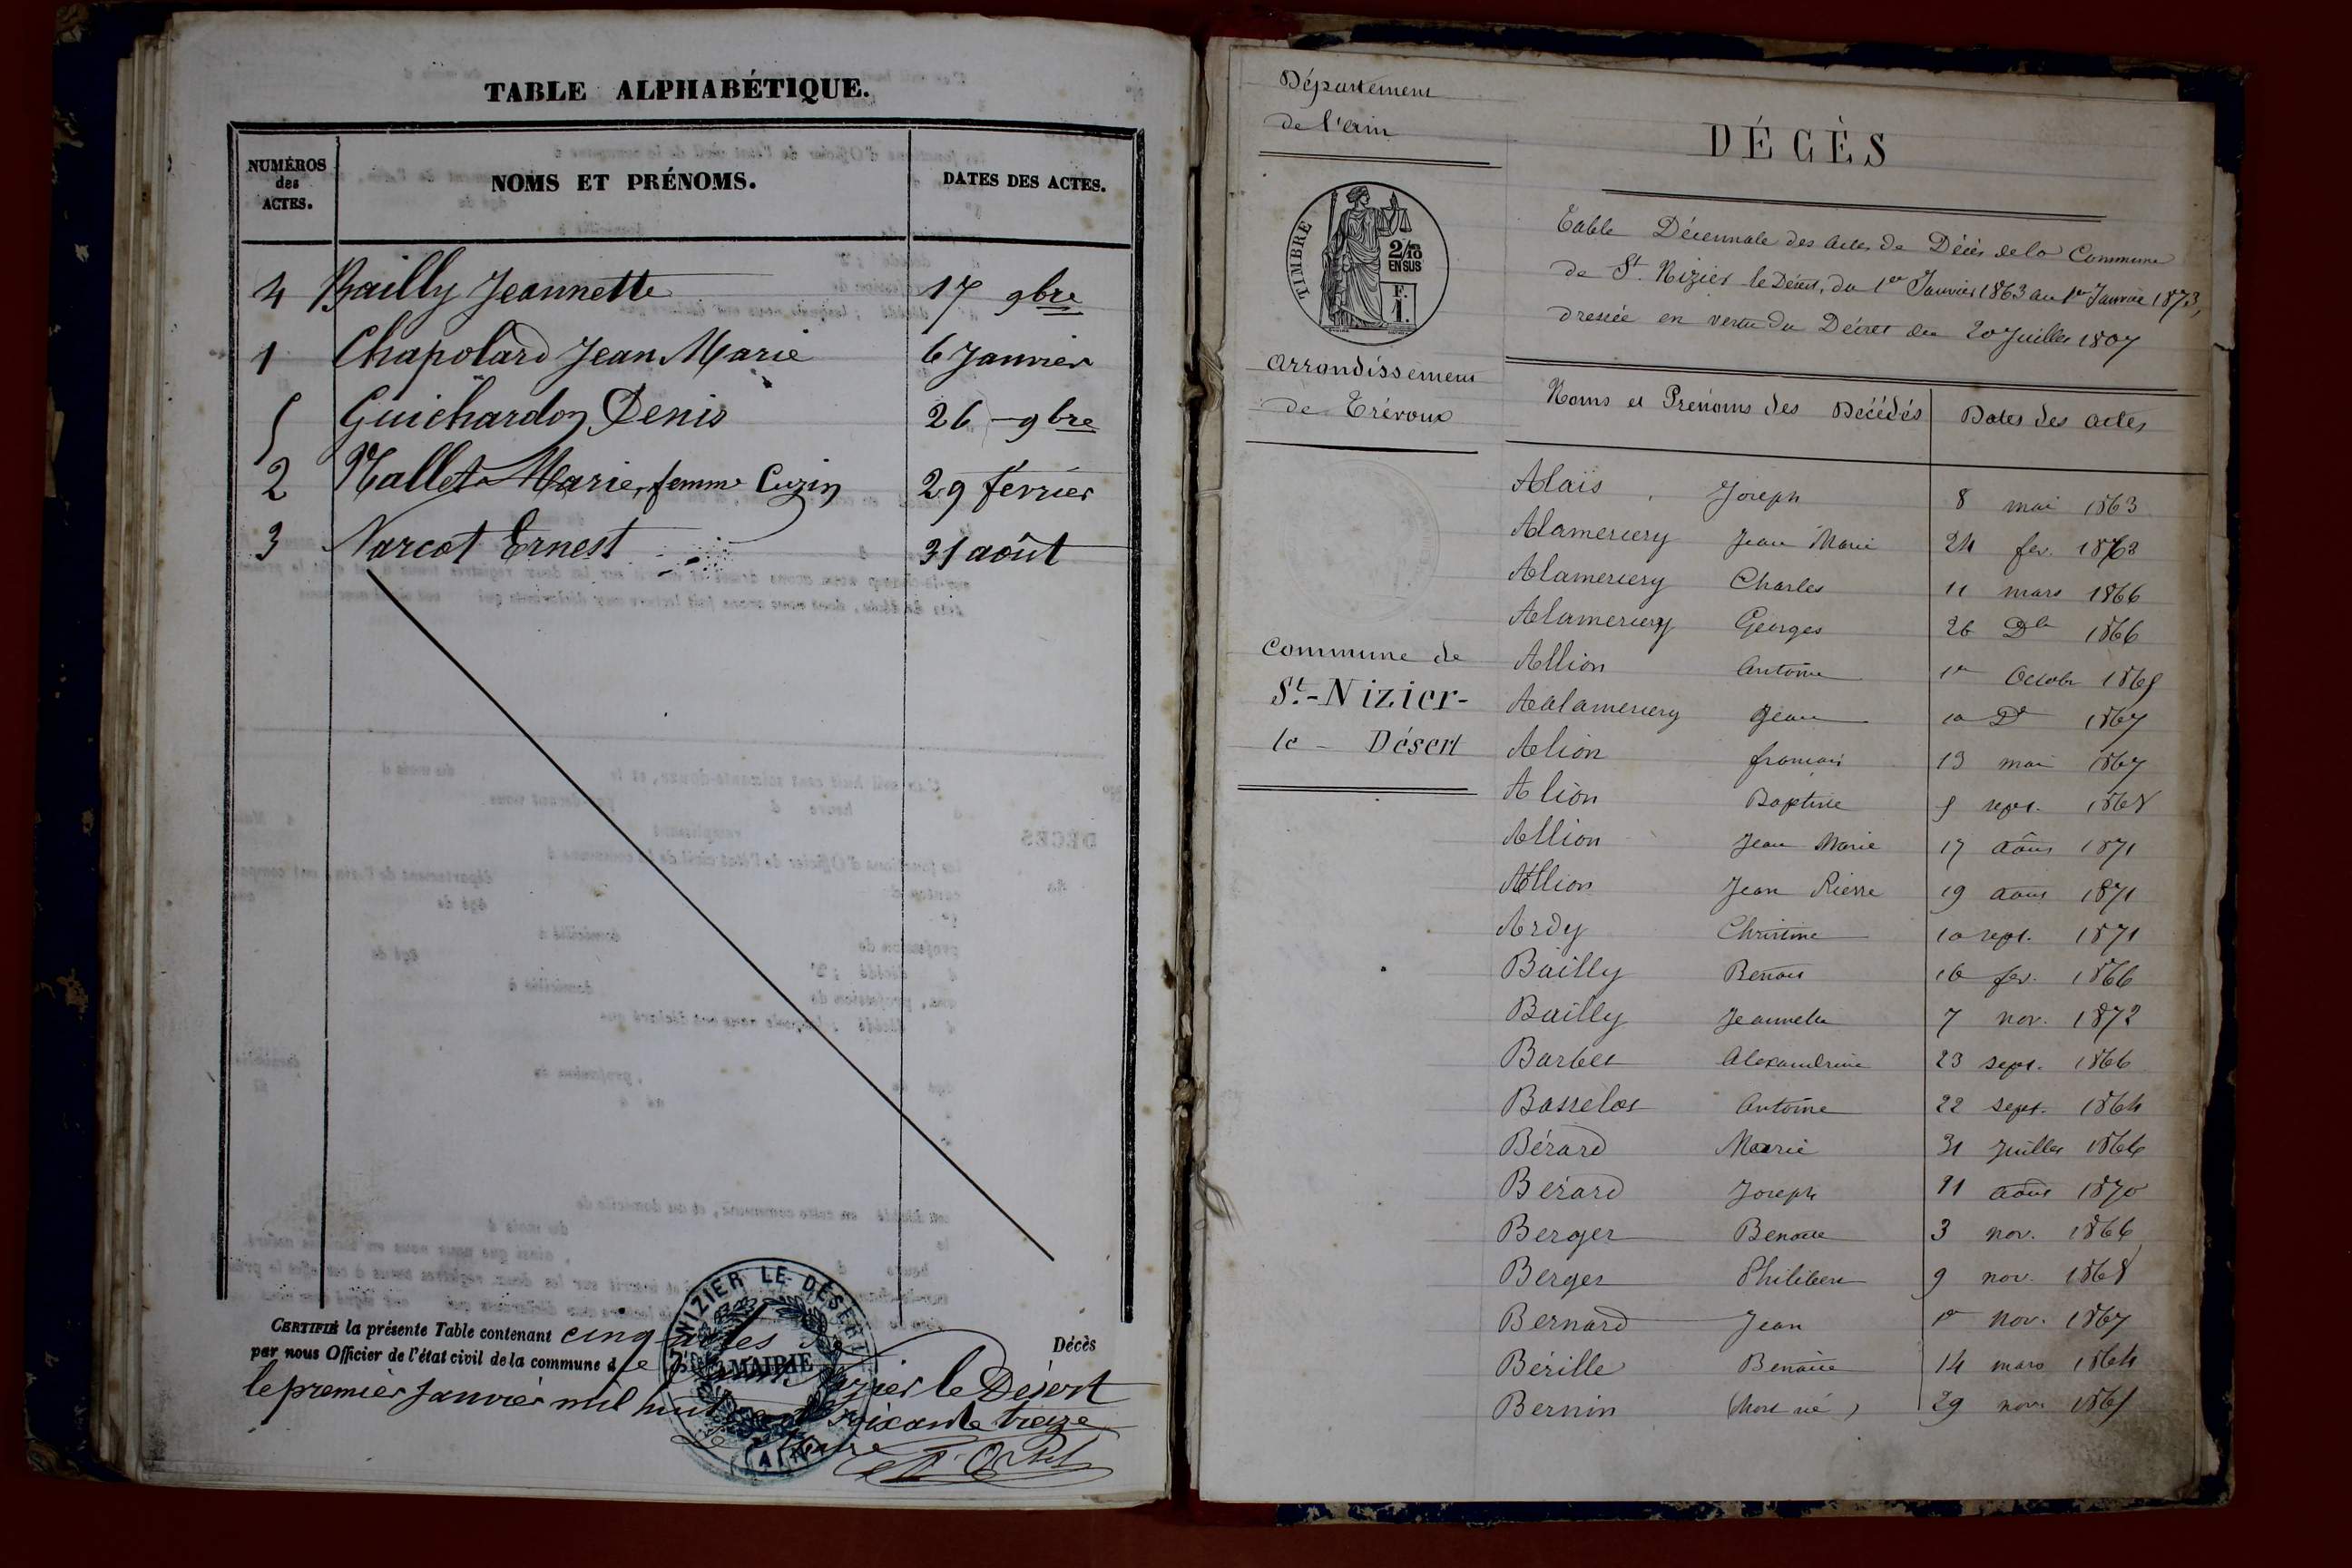 TABLE ALPHABÉTIQUE.
NUMÉROS des ACTES. NOMS ET PRÉNOMS. DATES DES ACTES.
4 Bailly Jeannette 17 9bre
1 Chapolard Jean Marie 6 Janvier
5 Guichardon Denis 26 9bre
2 Mallet Marie, femme Cuzin 29 février
3 Narcot Ernest 31 août
CERTIFIÉ la présente Table contenant cinq actes de Décès
par nous Officier de l'état civil de la commune de Saint Nizier le Désert
le premier Janvier mil huit cent soixante treize
Le Maire
NIZIER LE DÉSERT
MAIRIE
(AIN)
Département
de l'ain
TIMBRE
2/10
EN SUS
F.
1.
arrondissement
de Trévoux
commune de
St.-Nizier-
le - Désert
DÉCÈS
Table Décennale des actes de Décès de la Commune
de St Nizier le Désert, du 1er Janvier 1863 au 1er Janvier 1873,
dressée en vertu du Décret du 20 Juillet 1807
Noms et Prénoms des Décédés Dates des actes
Alaïs Joseph 8 mai 1863
Alamercery Jean Marie 24 fev. 1863
Alamercery Charles 11 mars 1866
Alamercery Georges 26 Dbr 1866
Allion Antoine 1er Octobr
Aalamercery Jean 10 Dr 1867
Alion françois 13 mai 1867
Alion Baptiste sept. 1868
Allion Jean Marie 17 août 1871
Allion Jean Pierre 19 aout 1871
Ardy Christine 10 sept. 1871
Bailly Benoit 16 fev. 1866
Bailly Jeannette 7 nov. 1872
Barbet Alexandrine 23 sept. 1866
Basselot Antoine 22 sept. 1864
Bérard Marie 31 Juillet 1866
Bérard Joseph 11 août 1870
Berger Benoite 3 nov. 1866
Berger Philibert 9 nov. 1868
Bernard Jean 1er nov. 1867
Bérille Benoite 14 mars 1864
Bernin (Mort né) 29 nov.